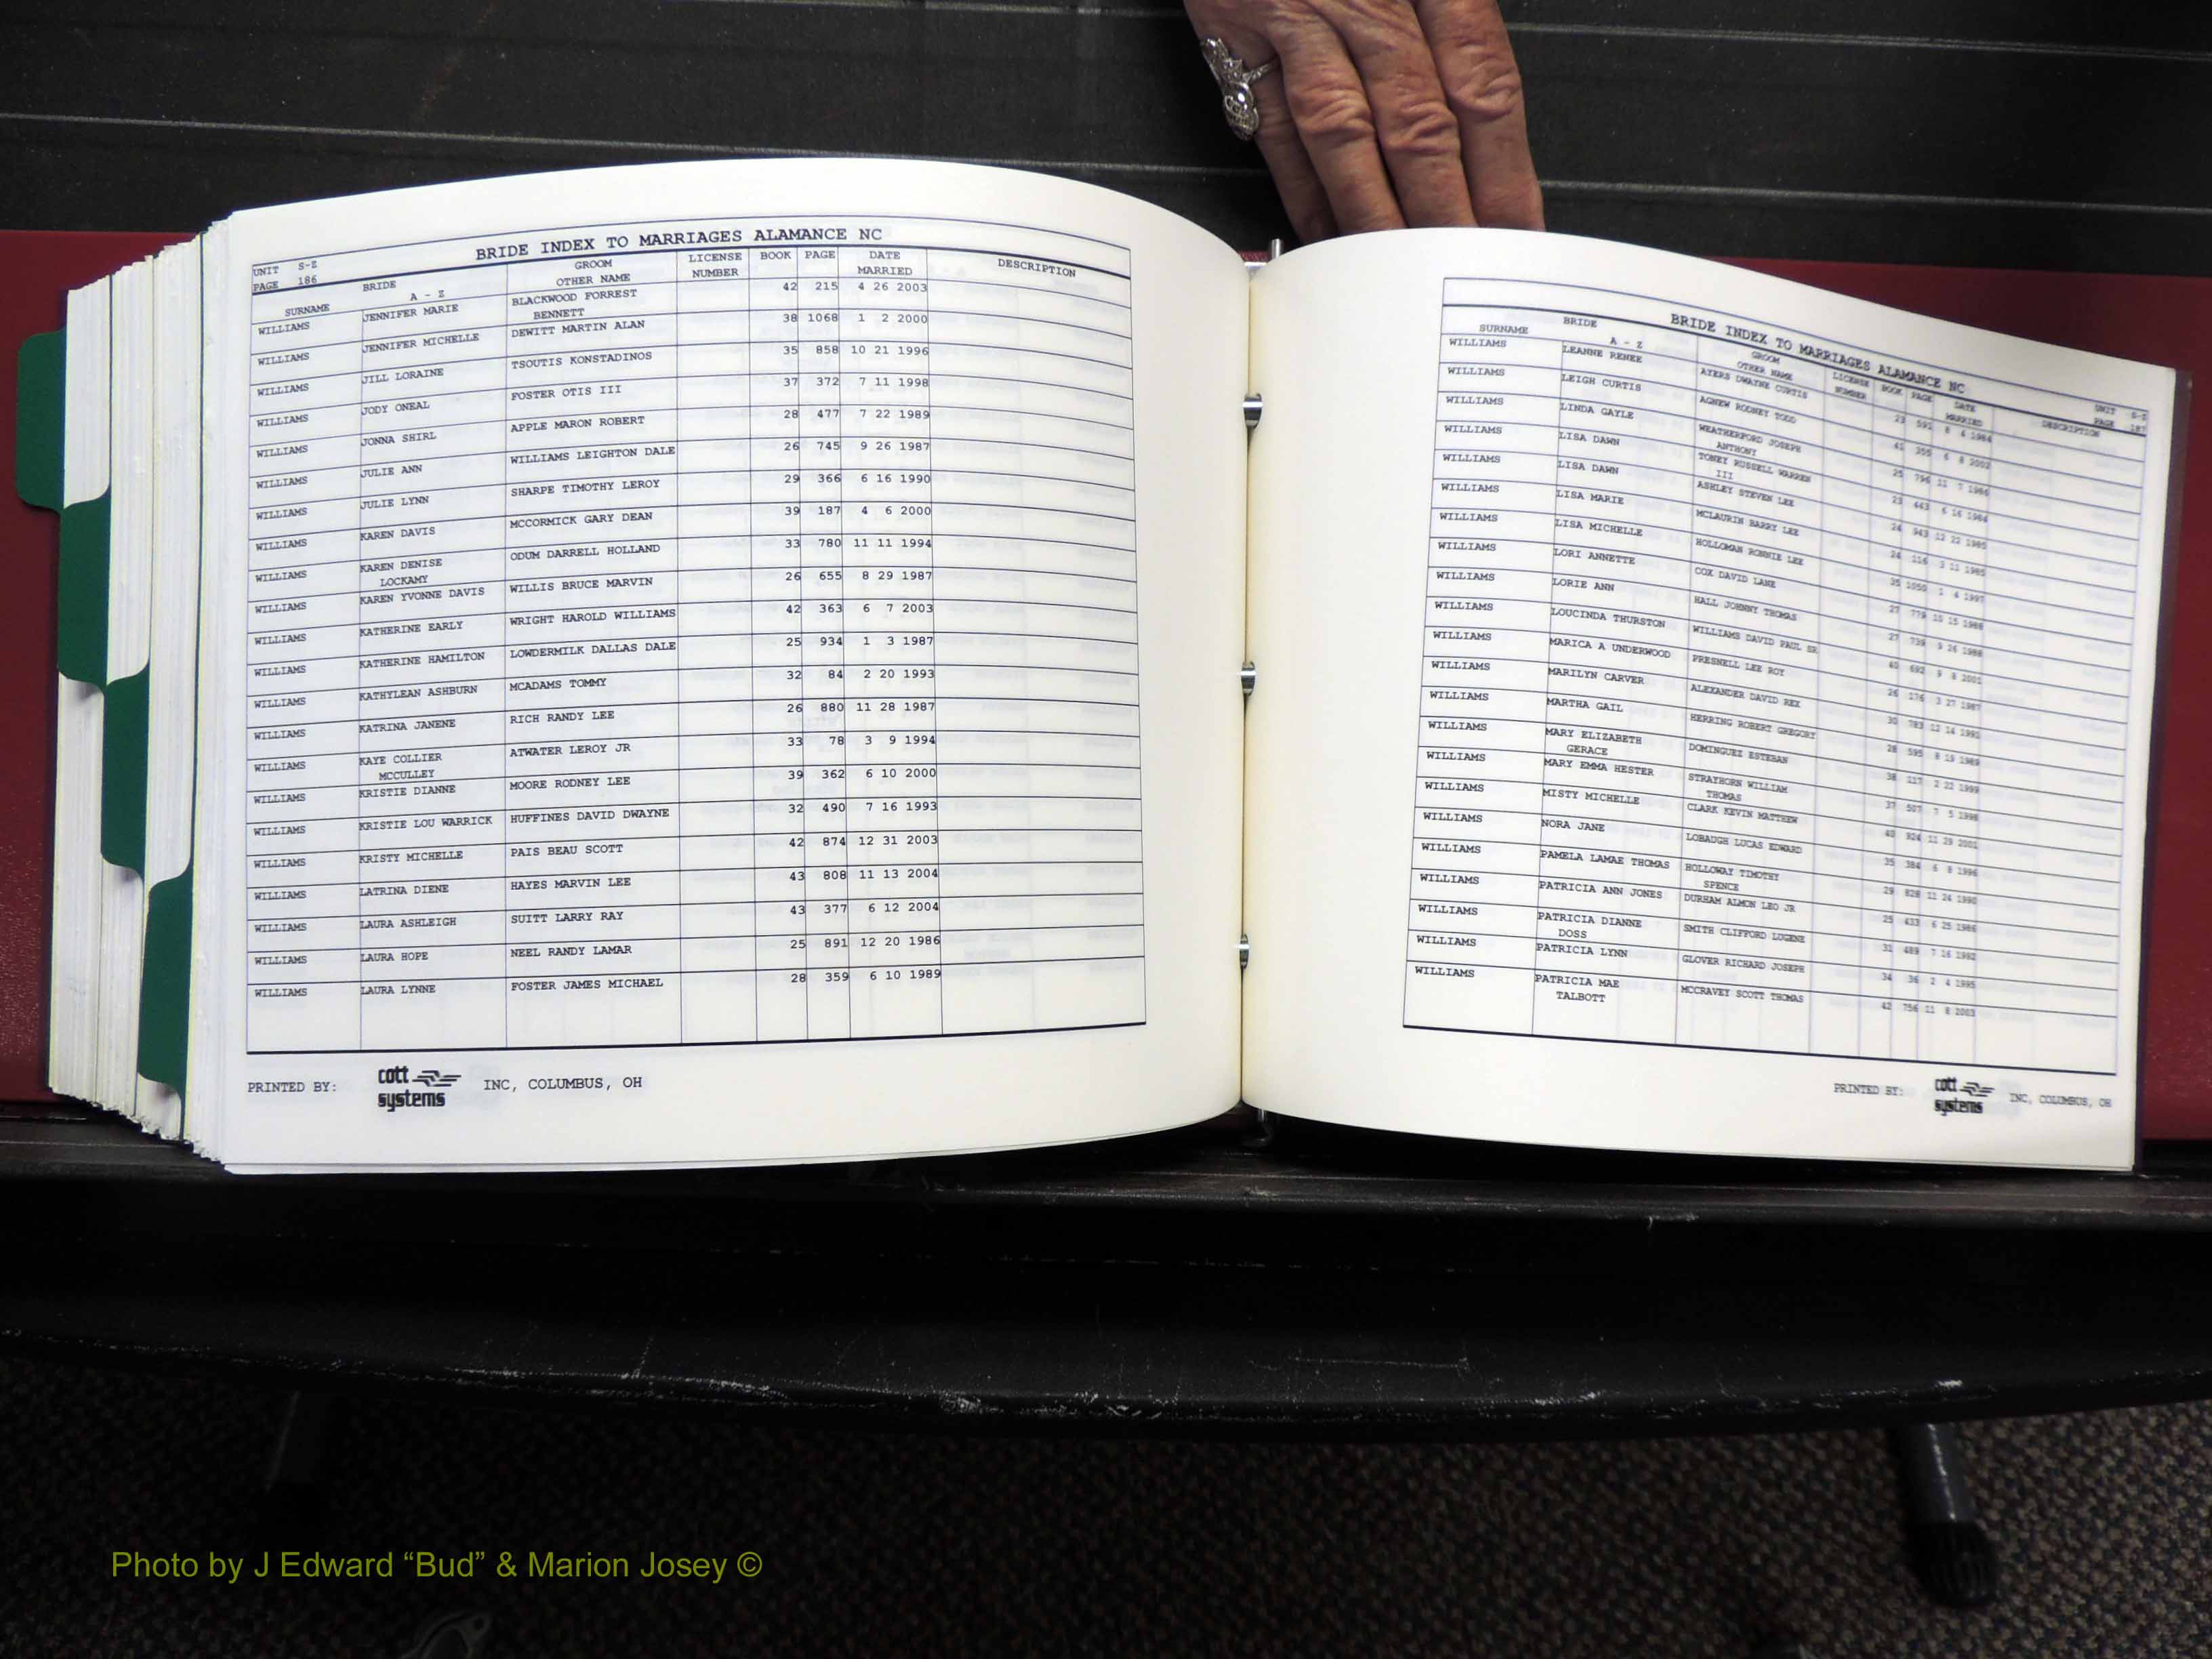 BRIDE INDEX TO MARRIAGES ALAMANCE NC
UNIT S-Z
PAGE 186
SURNAME BRIDE A - Z GROOM OTHER NAME LICENSE NUMBER BOOK PAGE DATE MARRIED DESCRIPTION
WILLIAMS JENNIFER MARIE BLACKWOOD FORREST 42 215 4 26 2003
BENNETT
WILLIAMS JENNIFER MICHELLE DEWITT MARTIN ALAN 38 1068 1 2 2000
WILLIAMS JILL LORAINE TSOUTIS KONSTADINOS 35 858 10 21 1996
WILLIAMS JODY ONEAL FOSTER OTIS III 37 372 7 11 1998
WILLIAMS JONNA SHIRL APPLE MARON ROBERT 28 477 7 22 1989
WILLIAMS JULIE ANN WILLIAMS LEIGHTON DALE 26 745 9 26 1987
WILLIAMS JULIE LYNN SHARPE TIMOTHY LEROY 29 366 6 16 1990
WILLIAMS KAREN DAVIS MCCORMICK GARY DEAN 39 187 4 6 2000
WILLIAMS KAREN DENISE ODUM DARRELL HOLLAND 33 780 11 11 1994
LOCKAMY
WILLIAMS KAREN YVONNE DAVIS WILLIS BRUCE MARVIN 26 655 8 29 1987
WILLIAMS KATHERINE EARLY WRIGHT HAROLD WILLIAMS 42 363 6 7 2003
WILLIAMS KATHERINE HAMILTON LOWDERMILK DALLAS DALE 25 934 1 3 1987
WILLIAMS KATHYLEAN ASHBURN MCADAMS TOMMY 32 84 2 20 1993
WILLIAMS KATRINA JANENE RICH RANDY LEE 26 880 11 28 1987
WILLIAMS KAYE COLLIER ATWATER LEROY JR 33 78 3 9 1994
MCCULLEY
WILLIAMS KRISTIE DIANNE MOORE RODNEY LEE 39 362 6 10 2000
WILLIAMS KRISTIE LOU WARRICK HUFFINES DAVID DWAYNE 32 490 7 16 1993
WILLIAMS KRISTY MICHELLE PAIS BEAU SCOTT 42 874 12 31 2003
WILLIAMS LATRINA DIENE HAYES MARVIN LEE 43 808 11 13 2004
WILLIAMS LAURA ASHLEIGH SUITT LARRY RAY 43 377 6 12 2004
WILLIAMS LAURA HOPE NEEL RANDY LAMAR 25 891 12 20 1986
WILLIAMS LAURA LYNNE FOSTER JAMES MICHAEL 28 359 6 10 1989
PRINTED BY: cott systems INC, COLUMBUS, OH
BRIDE INDEX TO MARRIAGES ALAMANCE NC
UNIT S-Z
PAGE 187
SURNAME BRIDE A - Z GROOM OTHER NAME LICENSE NUMBER BOOK PAGE DATE MARRIED DESCRIPTION
WILLIAMS LEANNE RENEE AYERS DWAYNE CURTIS 23 591 8 4 1984
WILLIAMS LEIGH CURTIS AGNEW RODNEY TODD 41 355 6 8 2002
WILLIAMS LINDA GAYLE WEATHERFORD JOSEPH 25 796 11 7 1986
ANTHONY
WILLIAMS LISA DAWN TONEY RUSSELL WARREN 23 443 6 16 1984
III
WILLIAMS LISA DAWN ASHLEY STEVEN LEE 24 943 12 22 1985
WILLIAMS LISA MARIE MCLAURIN BARRY LEE 24 116 3 11 1985
WILLIAMS LISA MICHELLE HOLLOMAN RONNIE LEE 35 1050 1 4 1997
WILLIAMS LORI ANNETTE COX DAVID LANE 27 779 10 15 1988
WILLIAMS LORIE ANN HALL JOHNNY THOMAS 27 739 9 26 1988
WILLIAMS LOUCINDA THURSTON WILLIAMS DAVID PAUL SR 40 692 9 8 2001
WILLIAMS MARICA A UNDERWOOD PRESNELL LEE ROY 26 176 3 27 1987
WILLIAMS MARILYN CARVER ALEXANDER DAVID REX 30 783 12 14 1991
WILLIAMS MARTHA GAIL HERRING ROBERT GREGORY 28 595 8 19 1989
WILLIAMS MARY ELIZABETH DOMINGUEZ ESTEBAN 38 117 2 22 1999
GERACE
WILLIAMS MARY EMMA HESTER STRAYHORN WILLIAM 37 507 7 5 1998
THOMAS
WILLIAMS MISTY MICHELLE CLARK KEVIN MATTHEW 40 924 11 29 2001
WILLIAMS NORA JANE LOBAUGH LUCAS EDWARD 35 384 6 8 1996
WILLIAMS PAMELA LAMAE THOMAS HOLLOWAY TIMOTHY 29 828 12 24 1990
SPENCE
WILLIAMS PATRICIA ANN JONES DURHAM ALMON LEO JR 25 433 6 25 1986
WILLIAMS PATRICIA DIANNE SMITH CLIFFORD LUGENE 31 489 7 16 1992
DOSS
WILLIAMS PATRICIA LYNN GLOVER RICHARD JOSEPH 34 36 2 4 1995
WILLIAMS PATRICIA MAE MCCRAVEY SCOTT THOMAS 42 756 11 8 2003
TALBOTT
PRINTED BY: cott systems INC, COLUMBUS, OH
Photo by J Edward “Bud” & Marion Josey ©